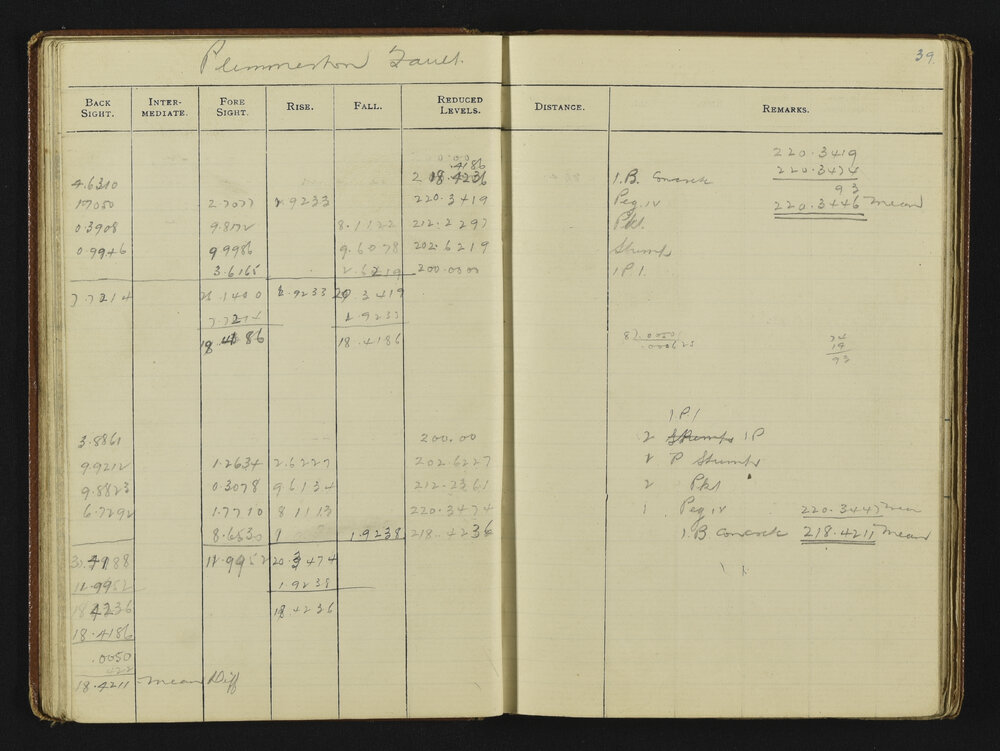 39.
BACK SIGHT. INTER-MEDIATE. FORE SIGHT. RISE. FALL. REDUCED LEVELS. DISTANCE. REMARKS.
220.3419
.4186
4.6310 218.4236 1.B. Concrete 220.3474
93
17050 2.7077 1.9233 220.3419 Peg iv 220.3446 mean
0.3908 9.8172 8.1122 212.2297 Pkt.
0.9946 99986 9.6078 202.6219 Stump
3.6165 2.6219 200.0000 1P1.
7.7214 26.1400 1.9233 20.3419
7.7214 1.9233
18.4186 18.4186
74
19
93
1P1
3.8861 200.00 2 1P
9.9212 1.2634 2.6227 202.6227 2 P Stumps
9.8823 0.3078 9.6134 212.2361 2 Pkt
6.7292 1.7710 8.1113 220.3474 1 Peg iv 220.3447 mean
8.6530 1.9238 218.4236 1.B Concrete 218.4211 mean
30.4188 11.9952 20.3474
11.9952 1.9238
18.4236 18.4236
18.4186
.0050
18.4211 mean Diff